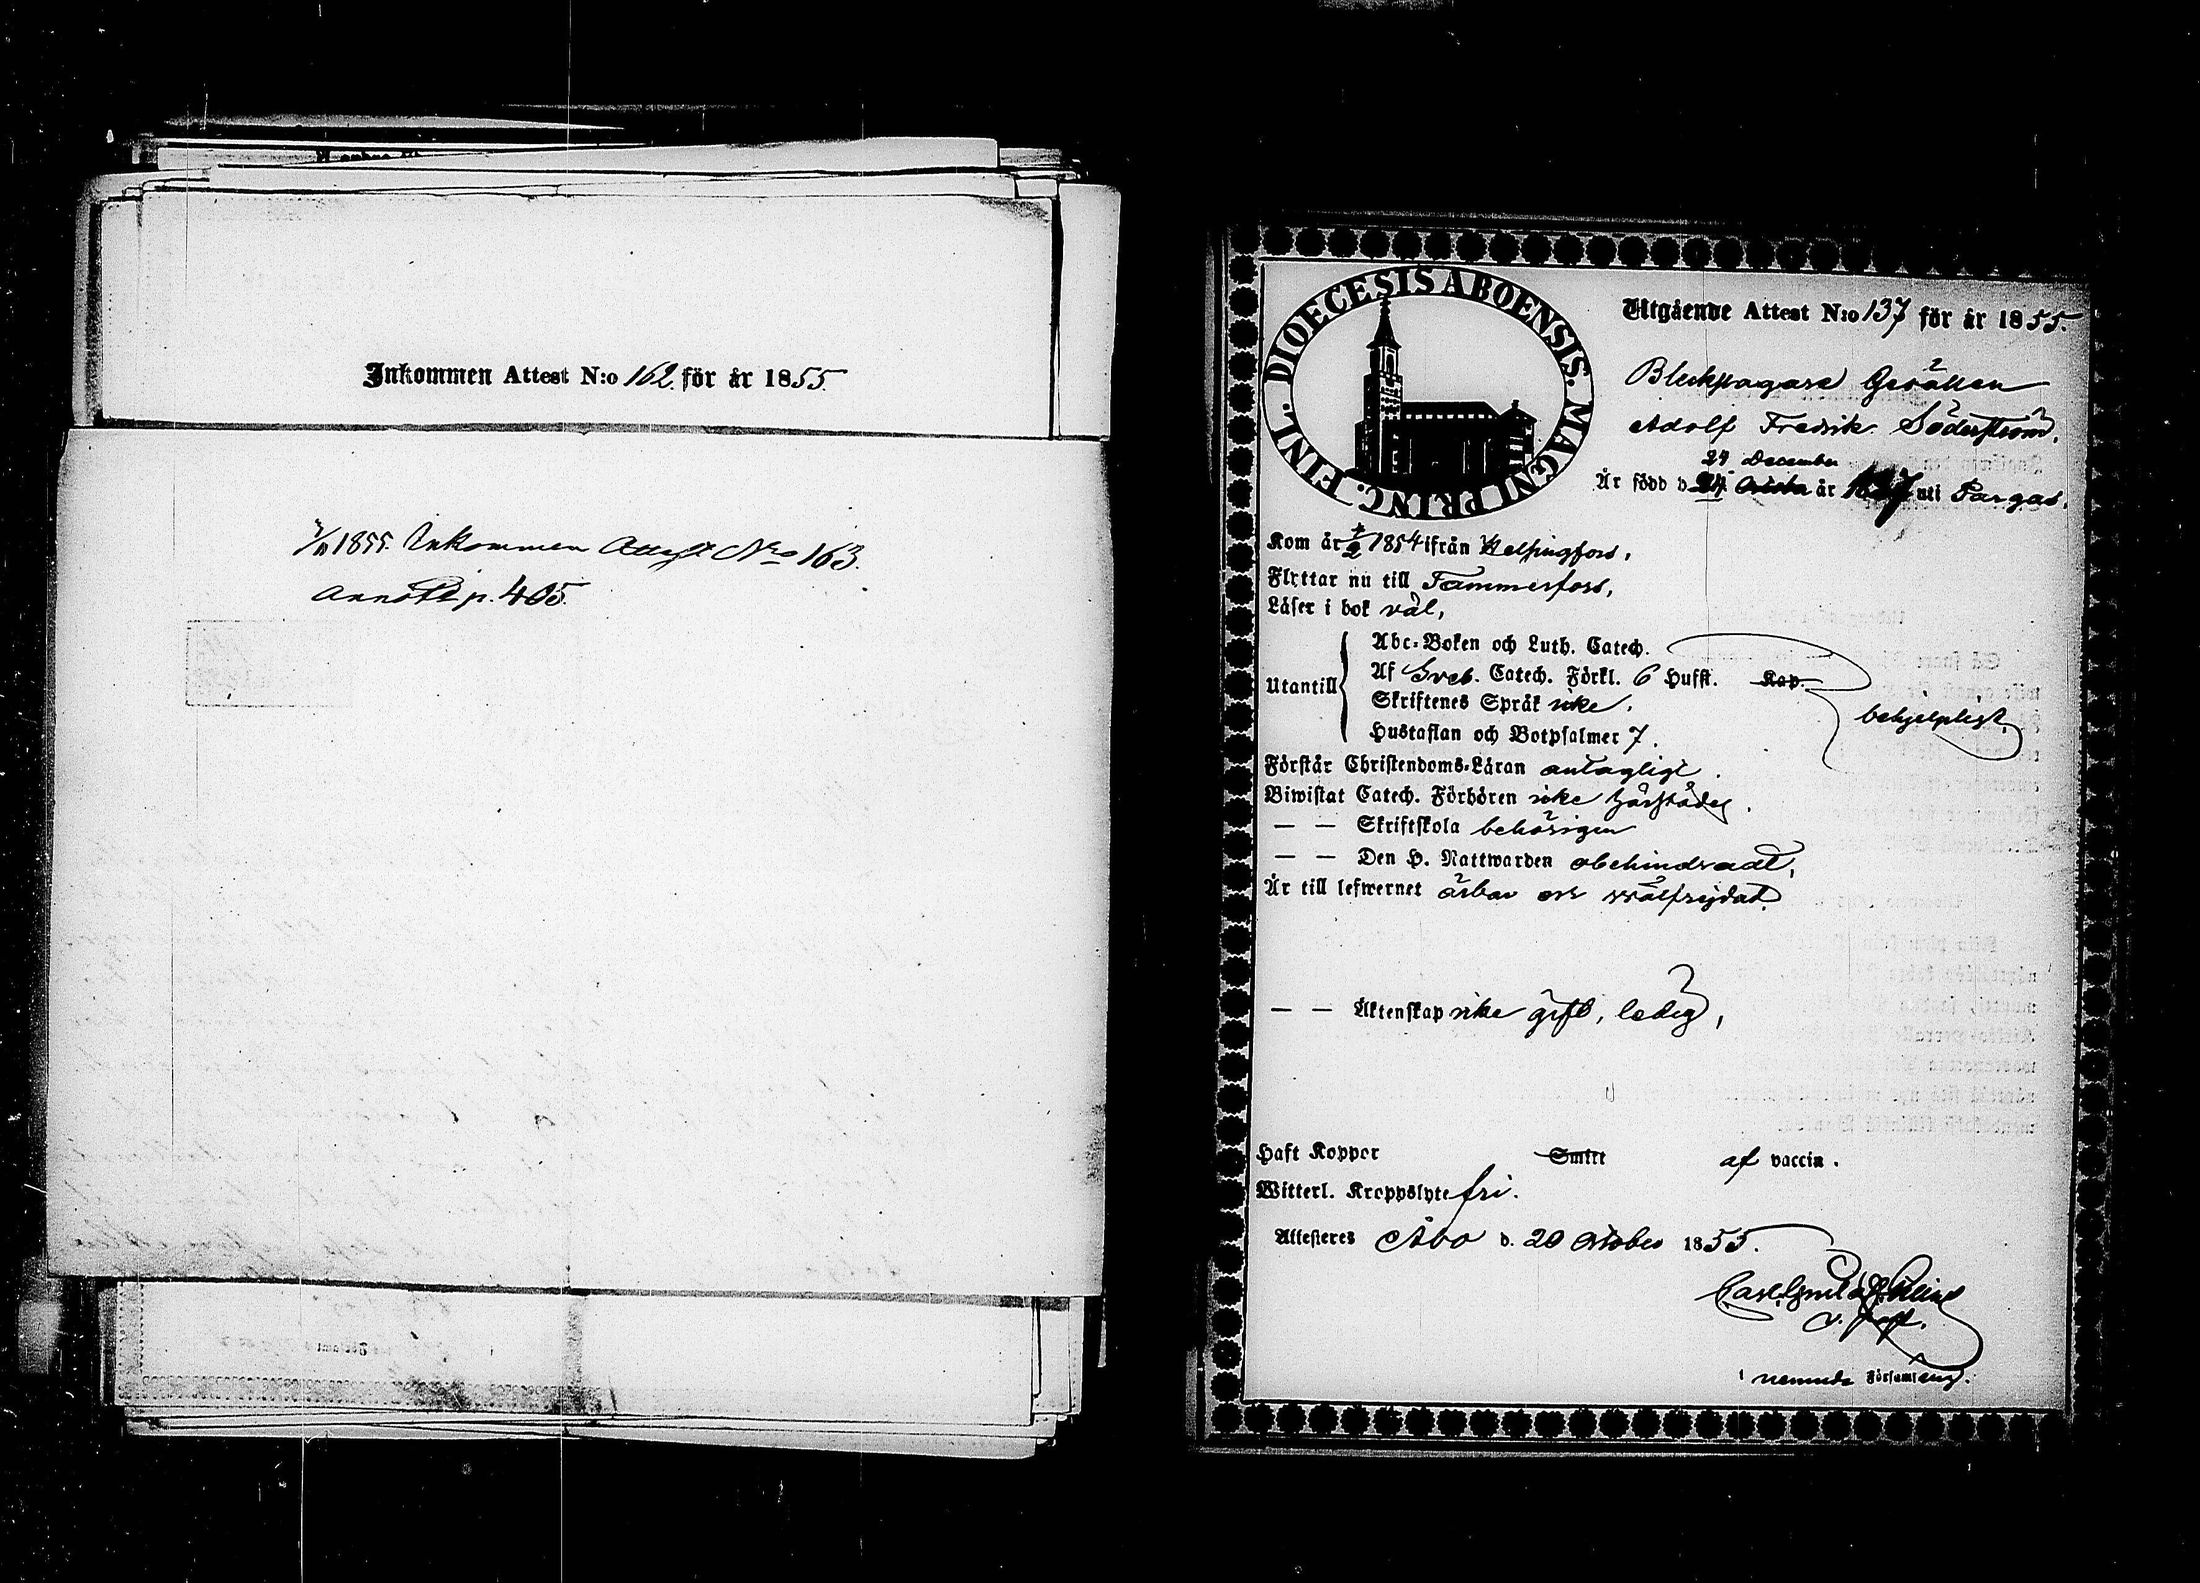 Inkommen Attest N:o 162. för år 1855.
1855. Inkommen Attest No 163.
p. 405.
DIOECESIS ABOENSIS. MAGNI PRINC. FINL.
Utgående Attest N:o 137 för år 1855.
Bleckslagare Gesällen
Adolf Fredrik Söderström.
24 December
Är född d. år uti Pargas.
Kom år 1854 ifrån Helsingfors,
Flyttar nu till Tammerfors,
Läser i bok väl,
Utantill
Abc-Boken och Luth. Catech.
Af Sveb. Catech. Förkl. 6 Hufst. Kap.
Skriftenes Språk icke.
behjelpligt.
Hustaflan och Botpsalmer 7.
Förstår Christendoms-Läran antagligt.
Biwistat Catech. Förhören icke härstädes.
— — Skriftskola behörigen
— — Den H. Nattwarden obehindradt,
Är till lefwernet ärbar och välfrejdad.
— — Äktenskap icke gift, ledig,
Haft Koppor Smitt af vaccin.
Witterl. Kroppslyte fri.
Attesteras Åbo d. 20 October 1855.
i nemnda Församling.